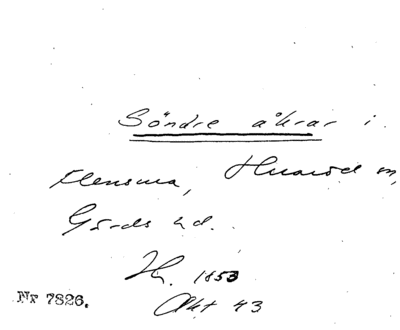 Söndre åkrar i
Elensma, Huaröd sn,
Gärds hd.
Hk. 1853
Akt 43
Nr 7826.